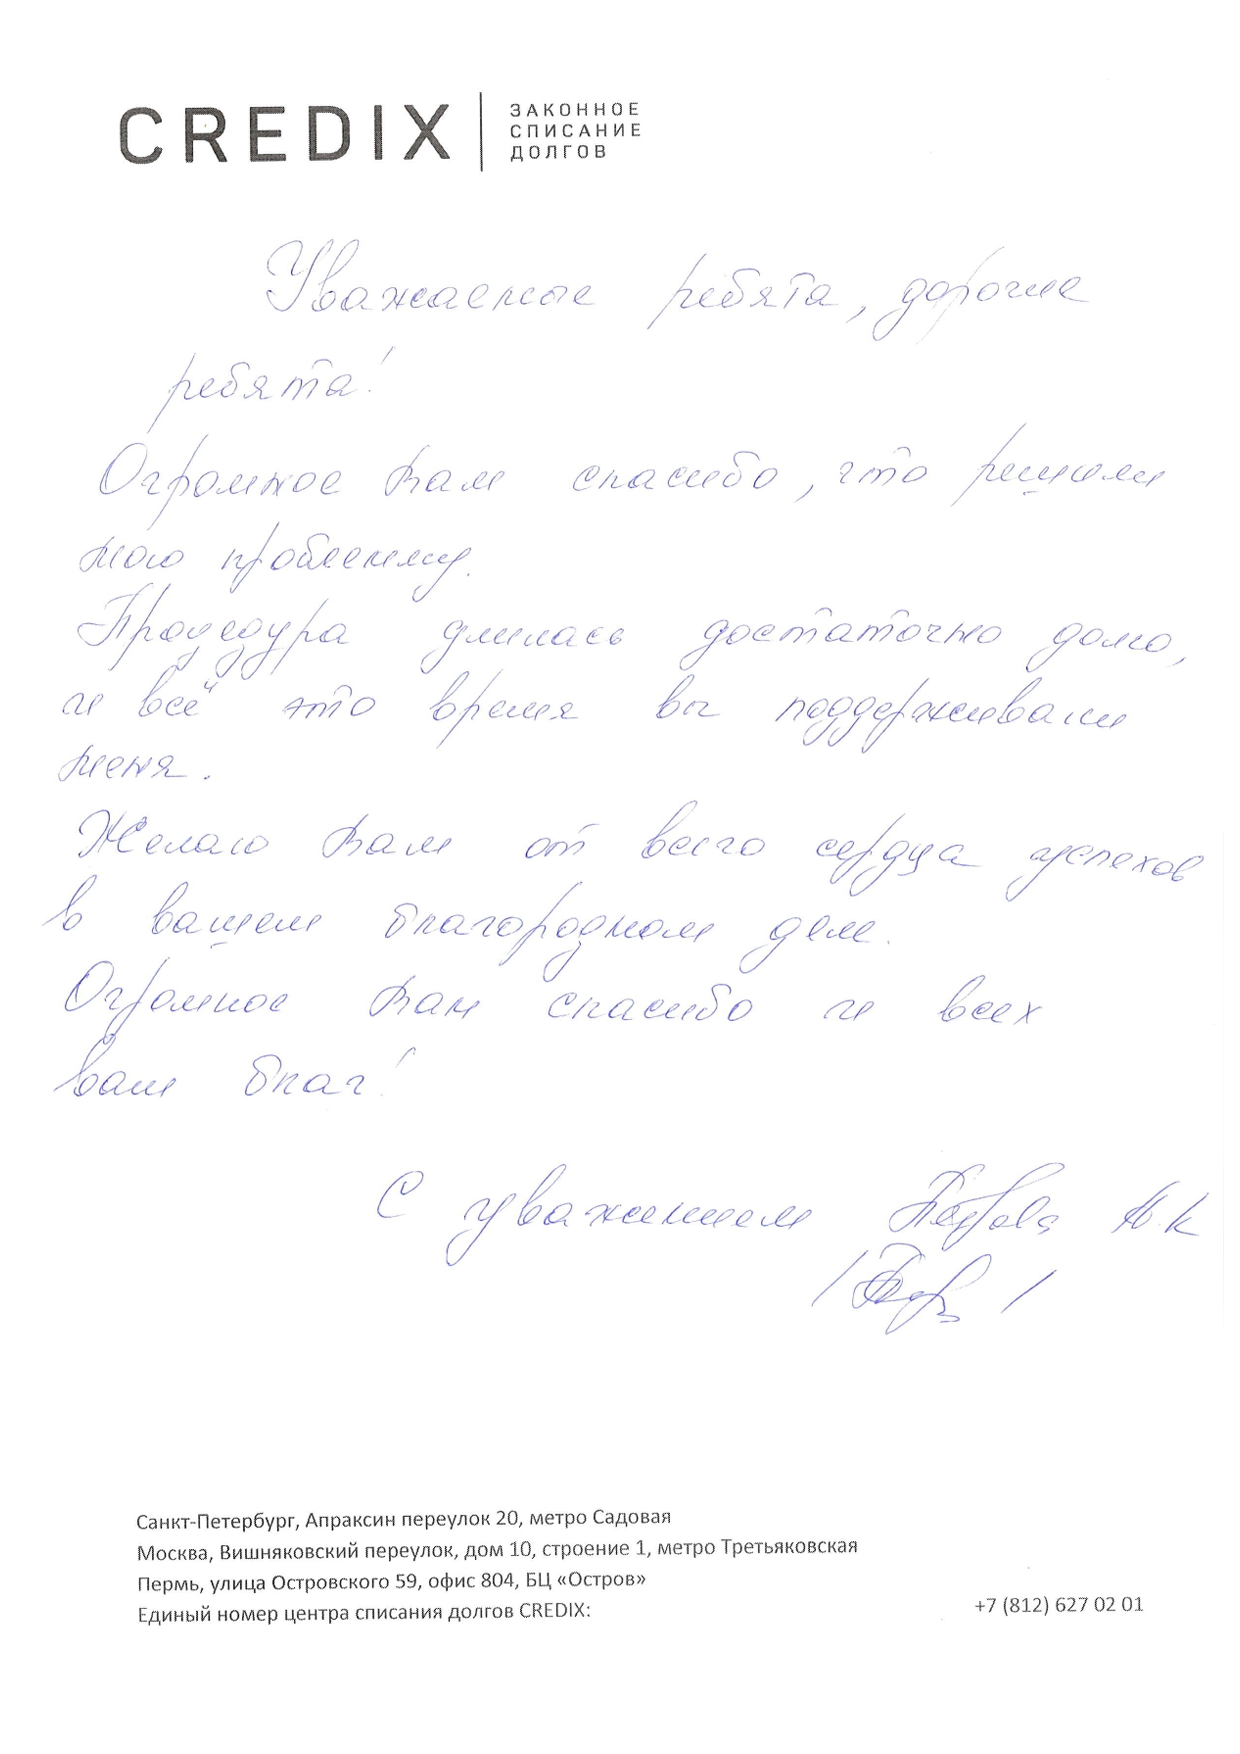 CREDIX
ЗАКОННОЕ
СПИСАНИЕ
ДОЛГОВ
Уважаемые ребята, дорогие
ребята!
Огромное Вам спасибо, что решили
мою проблемму.
Процедура длилась достаточно долго,
и всё это время вы поддерживали
меня.
Желаю Вам от всего сердца успехов
в вашем благородном деле.
Огромное Вам спасибо и всех
вам благ!
С уважением
Санкт-Петербург, Апраксин переулок 20, метро Садовая
Москва, Вишняковский переулок, дом 10, строение 1, метро Третьяковская
Пермь, улица Островского 59, офис 804, БЦ «Остров»
Единый номер центра списания долгов CREDIX: +7 (812) 627 02 01